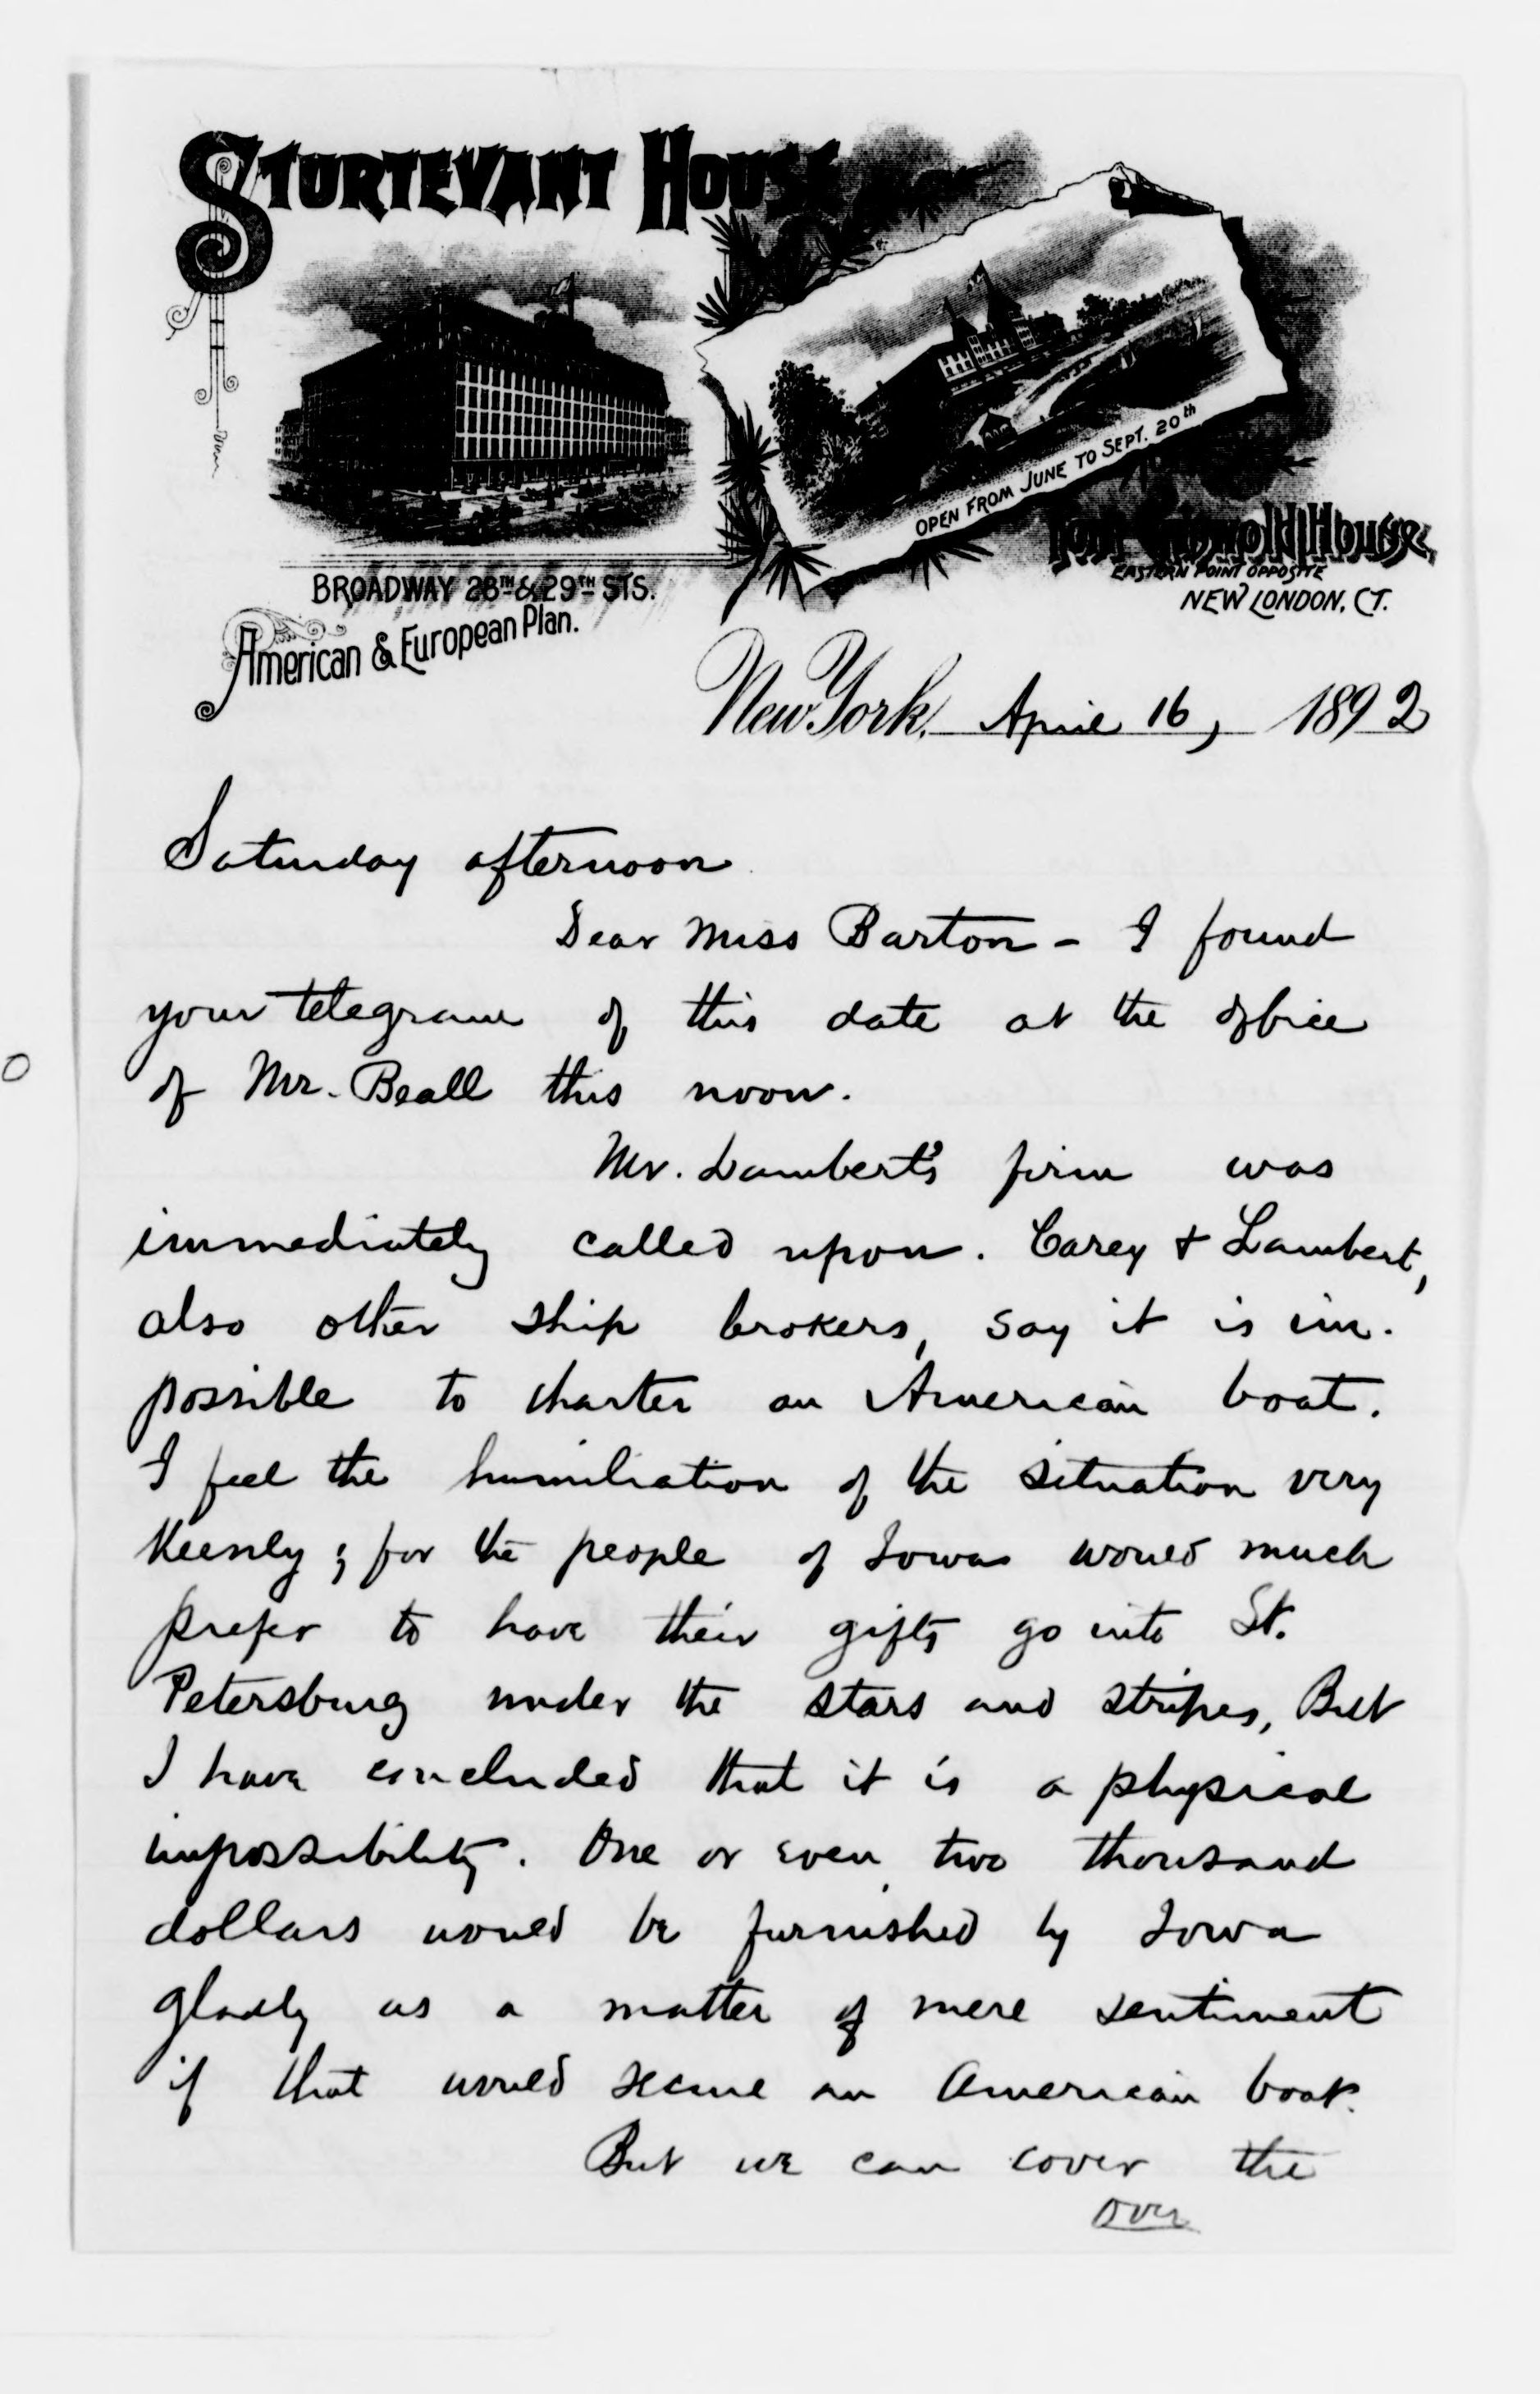 STURTEVANT HOUSE
OPEN FROM JUNE TO SEPT. 20th
Fort Griswold House,
EASTERN POINT OPPOSITE
NEW LONDON, CT.
BROADWAY 28TH & 29TH STS.
American & European Plan.
New York, April 16, 1892
Saturday afternoon
Dear Miss Barton - I found
your telegram of this date at the office
of Mr. Beall this noon.
Mr. Lambert's firm was
immediately called upon. Carey & Lambert,
also other ship brokers, say it is im-
possible to charter an American boat.
I feel the humiliation of the situation very
keenly; for the people of Iowa would much
prefer to have their gifts go into St.
Petersburg under the stars and stripes, But
I have concluded that it is a physical
impossibility. One or even two thousand
dollars would be furnished by Iowa
gladly as a matter of mere sentiment
if that would secure an American boat.
But we can cover the
over